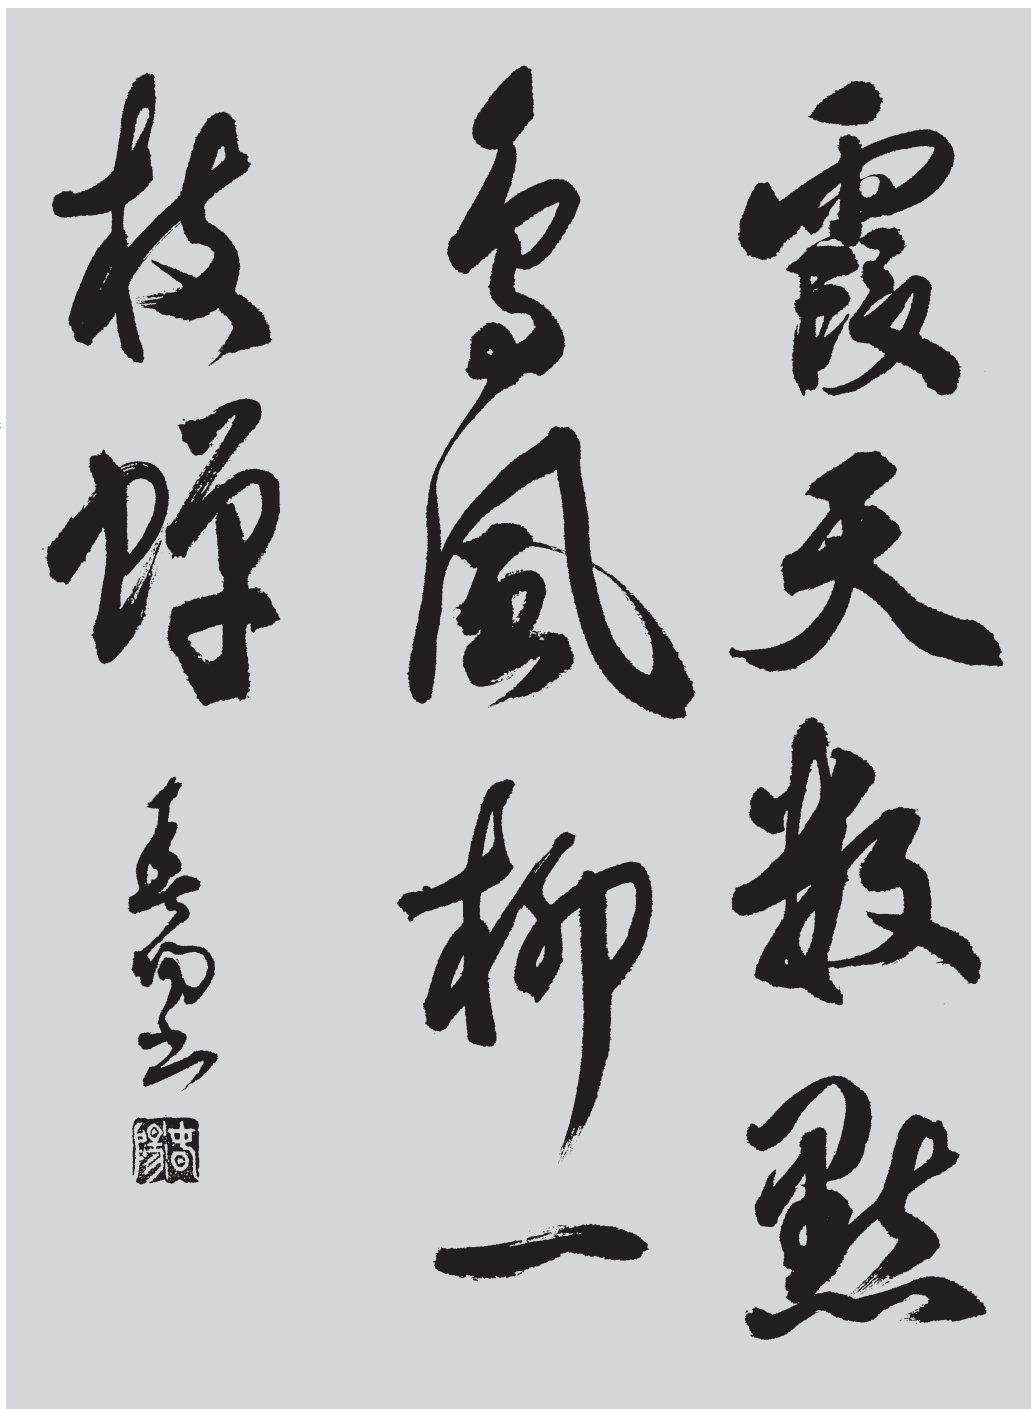 霞天数點
鳥風柳一
枝蟬
春陽書
春陽